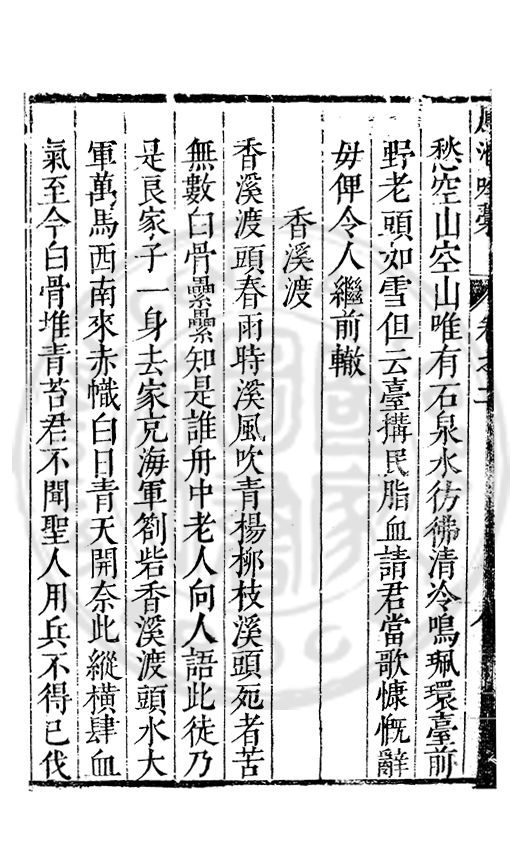 愁空山空山唯有石泉水彷彿清冷鳴珮環臺前
野老頭如雪但云臺搆民脂血請君當歌慷慨辭
毋俾令人繼前轍
香溪渡
香溪渡頭春雨時溪風吹青楊柳枝溪頭死者苦
無數白骨纍纍知是誰舟中老人向人語此徒乃
是良家子一身去家充海軍劄砦香溪渡頭水大
軍萬馬西南來赤幟白日青天開奈此縱橫肆血
氣至今白骨堆青苔君不聞聖人用兵不得已伐